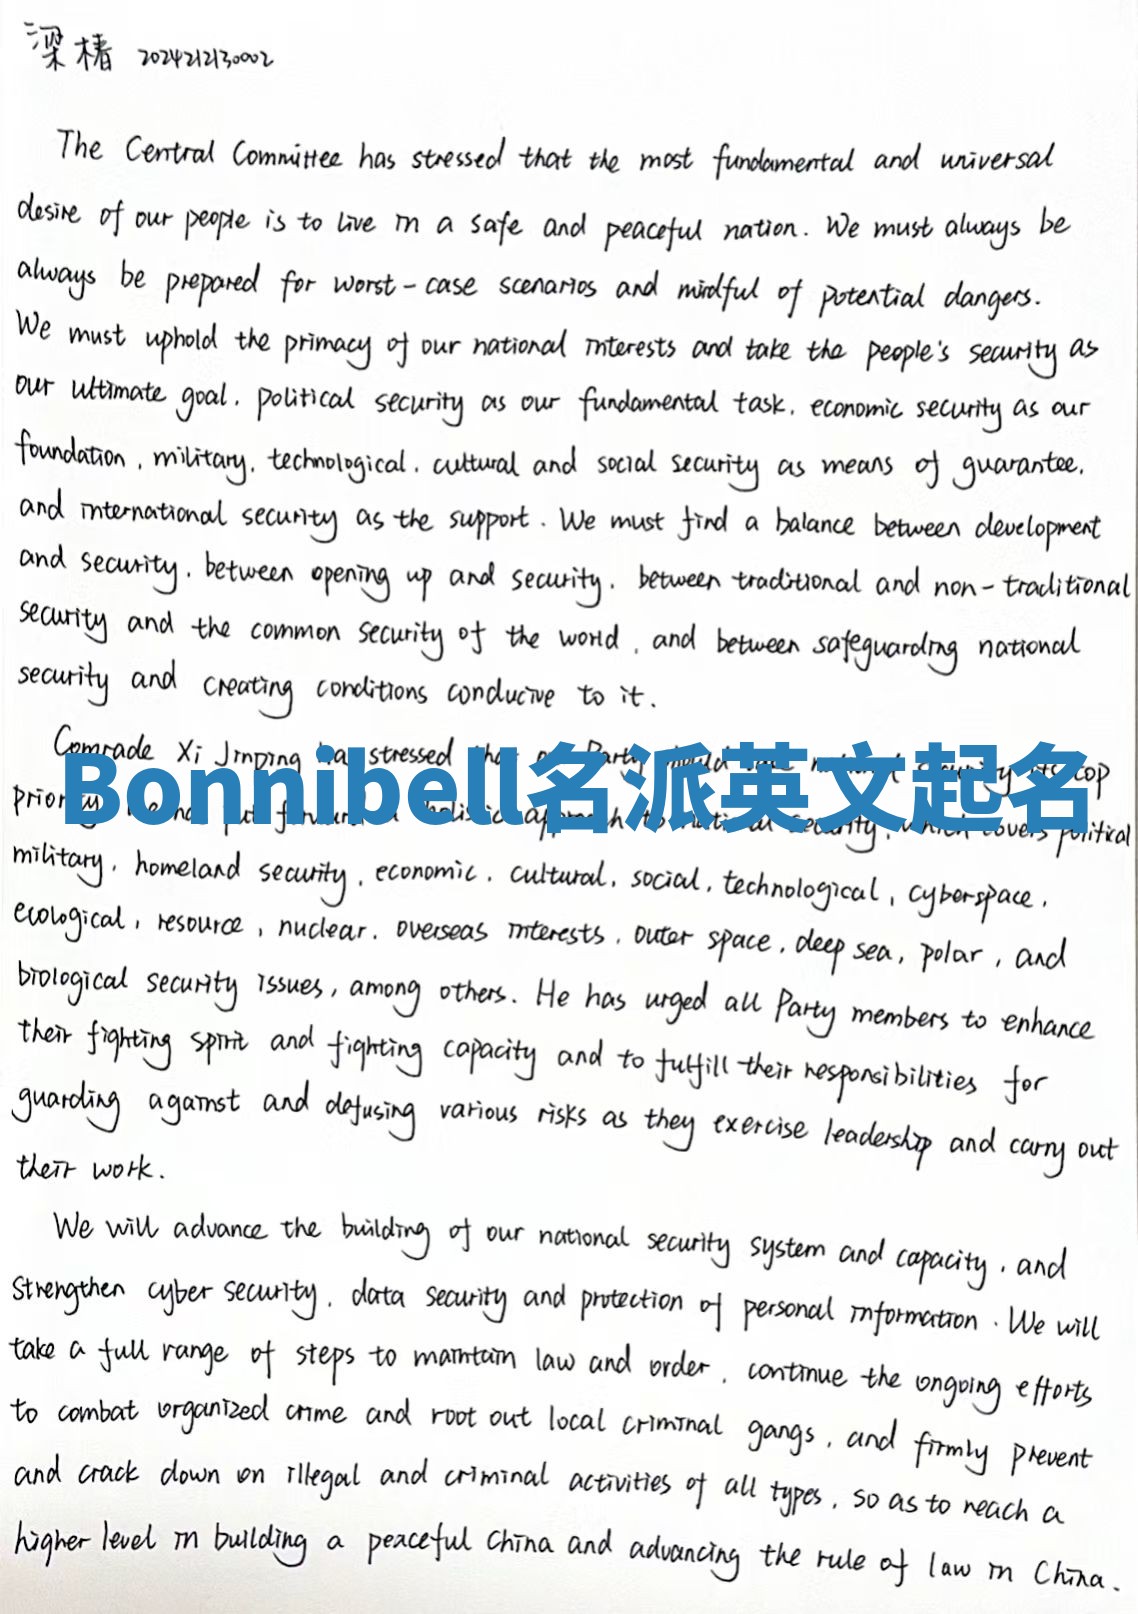 梁椿 2024212130002
The Central Committee has stressed that the most fundamental and universal
desire of our people is to live in a safe and peaceful nation. We must always be
always be prepared for worst-case scenarios and mindful of potential dangers.
We must uphold the primacy of our national interests and take the people's security as
our ultimate goal, political security as our fundamental task, economic security as our
foundation, military, technological, cultural and social security as means of guarantee,
and international security as the support. We must find a balance between development
and security, between opening up and security, between traditional and non-traditional
security and the common security of the world, and between safeguarding national
security and creating conditions conducive to it.
Comrade Xi Jinping has stressed
top
Bonnibell名派英文起名
which covers political
military, homeland security, economic, cultural, social, technological, cyberspace,
ecological, resource, nuclear, overseas interests, outer space, deep sea, polar, and
biological security issues, among others. He has urged all Party members to enhance
their fighting spirit and fighting capacity and to fulfill their responsibilities for
guarding against and defusing various risks as they exercise leadership and carry out
their work.
We will advance the building of our national security system and capacity, and
strengthen cyber security, data security and protection of personal information. We will
take a full range of steps to maintain law and order, continue the ongoing efforts
to combat organized crime and root out local criminal gangs, and firmly prevent
and crack down on illegal and criminal activities of all types, so as to reach a
higher level in building a peaceful China and advancing the rule of law in China.